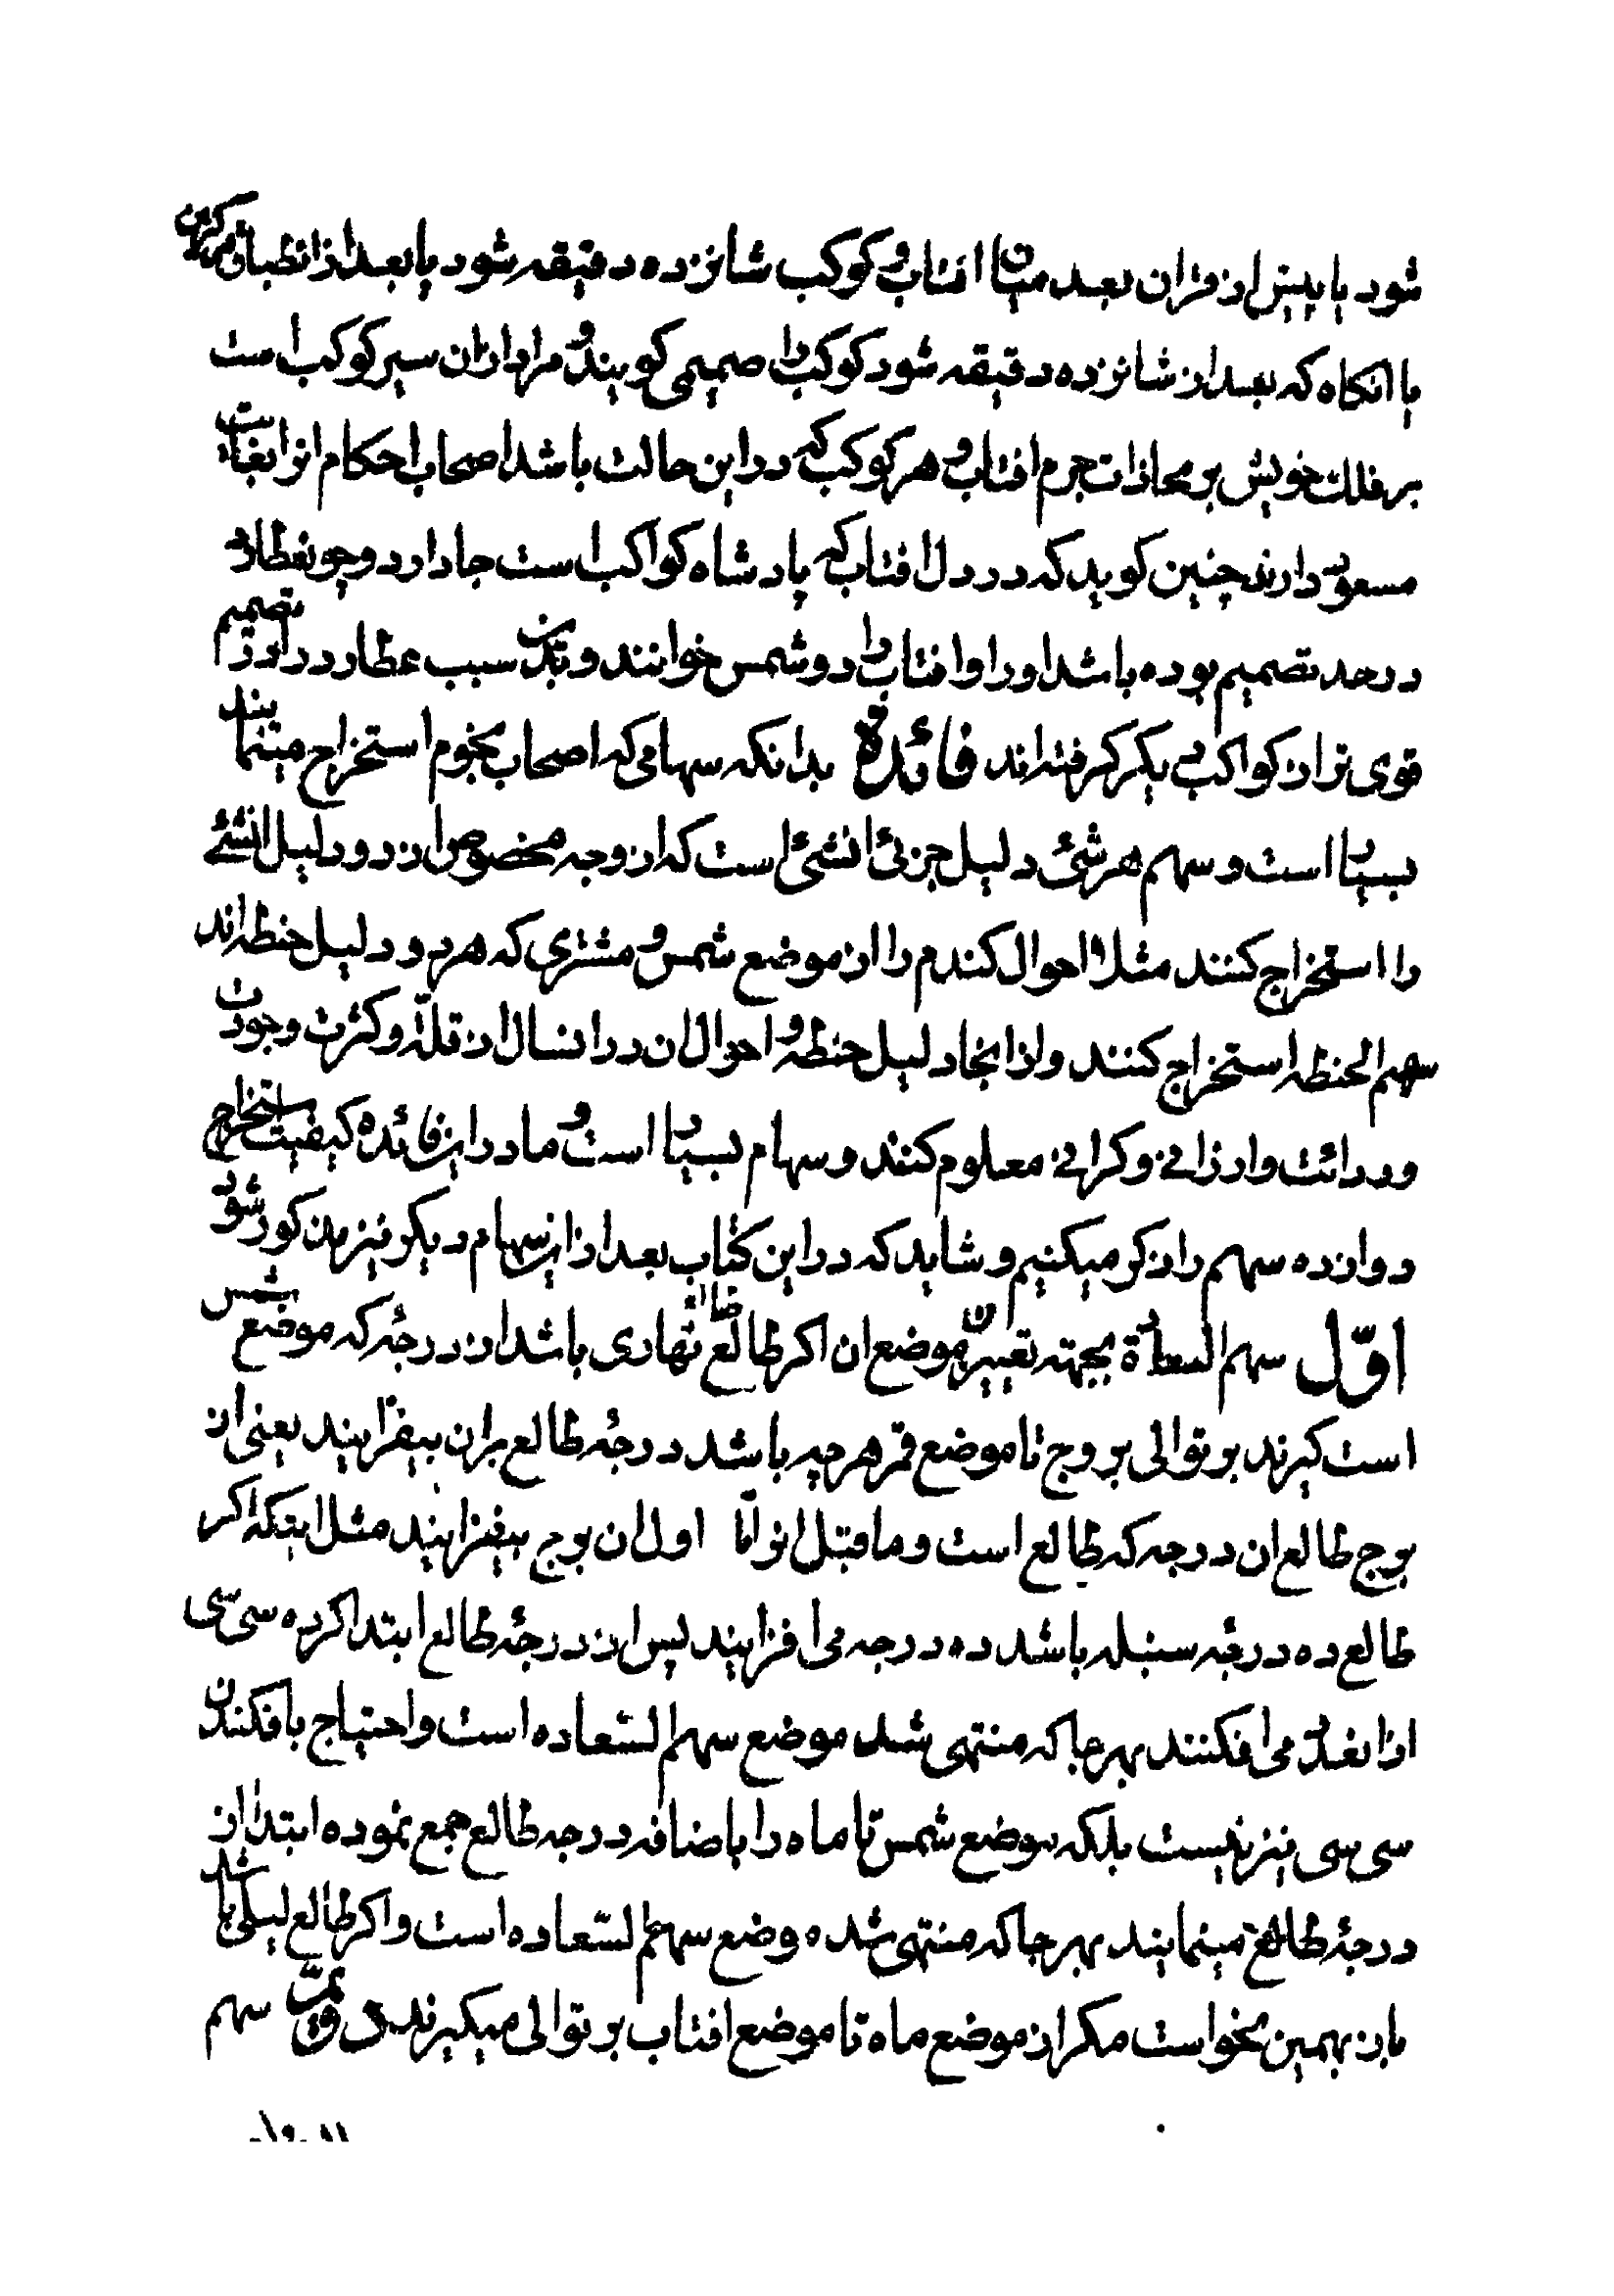 شود یا پیش از قران بعد میان افتاب و کوکب شانزده دقیقه شود یا بعد از انطباق مرکزین
یا انکاه که بعد از شانزده دقیقه شود کوکب را صمیمی کویند و مراد از ان سیر کوکب است
بر فلک خویش بر محاذات جرم افتاب و هر کوکب که در این حالت باشد اصحاب احکام انرا بغایت
مسعود دارند چنین کوید که در دل افتاب که پادشاه کواکب است جا دارد و چون عطارد
در حد تصمیم بوده باشد او را و افتاب را دو شمس خوانند و بدین سبب عطارد را در تصمیم
قوی تر از کواکب دیکر کرفته اند فائدة بدانکه سهامی که اصحاب نجوم استخراج مینمایند
بسیار است و سهم هر شئ دلیل جزئی انشئ است که از وجه مخصوص از دو دلیل انشئ
را استخراج کنند مثلا احوال کندم را از موضع شمس و مشتری که هر دو دلیل حنطه اند
سهم الحنطه استخراج کنند و از انجا دلیل حنطه و احوال ان در انسال از قلة و کثرت وجودت
و ردائت و ارزانی و کرانی معلوم کنند و سهام بسیار است و ما در این فائده کیفیت استخراج
دوازده سهم را ذکر میکنیم و شاید که در این کتاب بعد از این سهام دیکر نیز مذکور شود
اوّل سهم السعادة بجهته تعیین موضع ان اکر طالع نهاری باشد از درجهٔ که موضع شمس
است کیرند بر توالی بروج تا موضع قمر هر چه باشد درجهٔ طالع بران بیفزایند یعنی از
برج طالع ان درجه که طالع است و ما قبل انرا تا اول ان برج بیفزایند مثل اینکه اکر
طالع ده درجهٔ سنبله باشد ده درجه می افزایند پس از درجهٔ طالع ابتدا کرده سی سی
از انعدد می افکنند بهر جا که منتهی شد موضع سهم السّعاده است و احتیاج بافکندن
سی سی نیز نیست بلکه موضع شمس تا ماه را باضافه درجه طالع جمع نموده ابتدا از
درجهٔ طالع مینمایند بهر جا که منتهی شد موضع سهم السّعاده است و اکر طالع لیلی باشد
باز بهمین نحو است مکر از موضع ماه تا موضع افتاب بر توالی میکیرند دویّم سهم